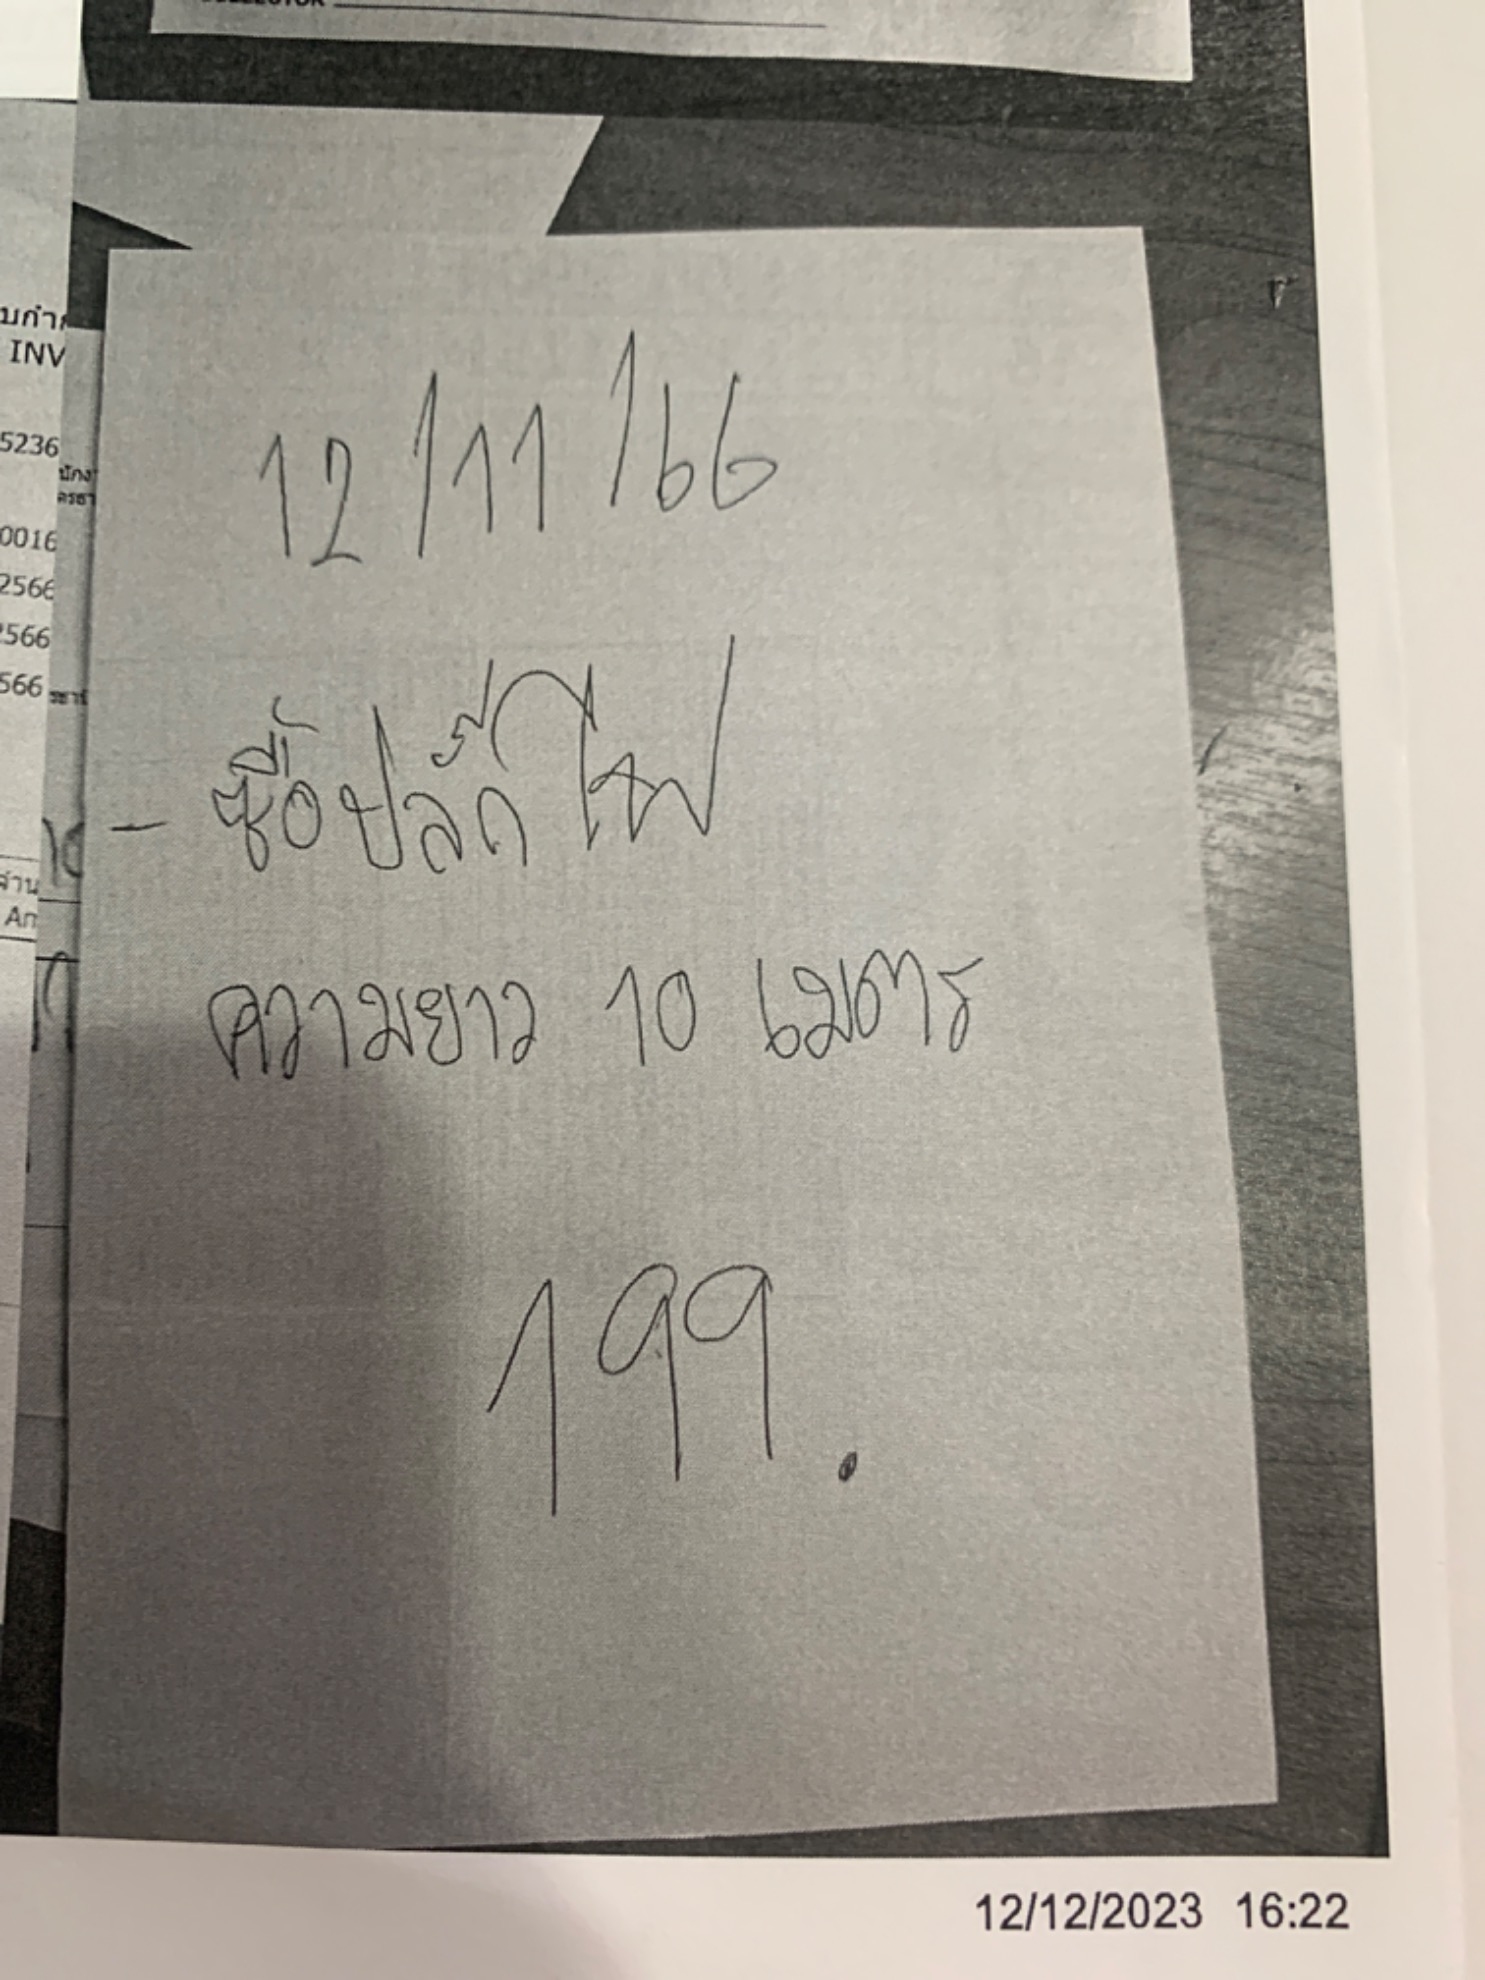 บกำก
INV
5236
0016
2566
2566
566
จำน
Am
12/11/66
- ซื้อปลั๊กไฟ
ความยาว 10 เมตร
199.
12/12/2023 16:22